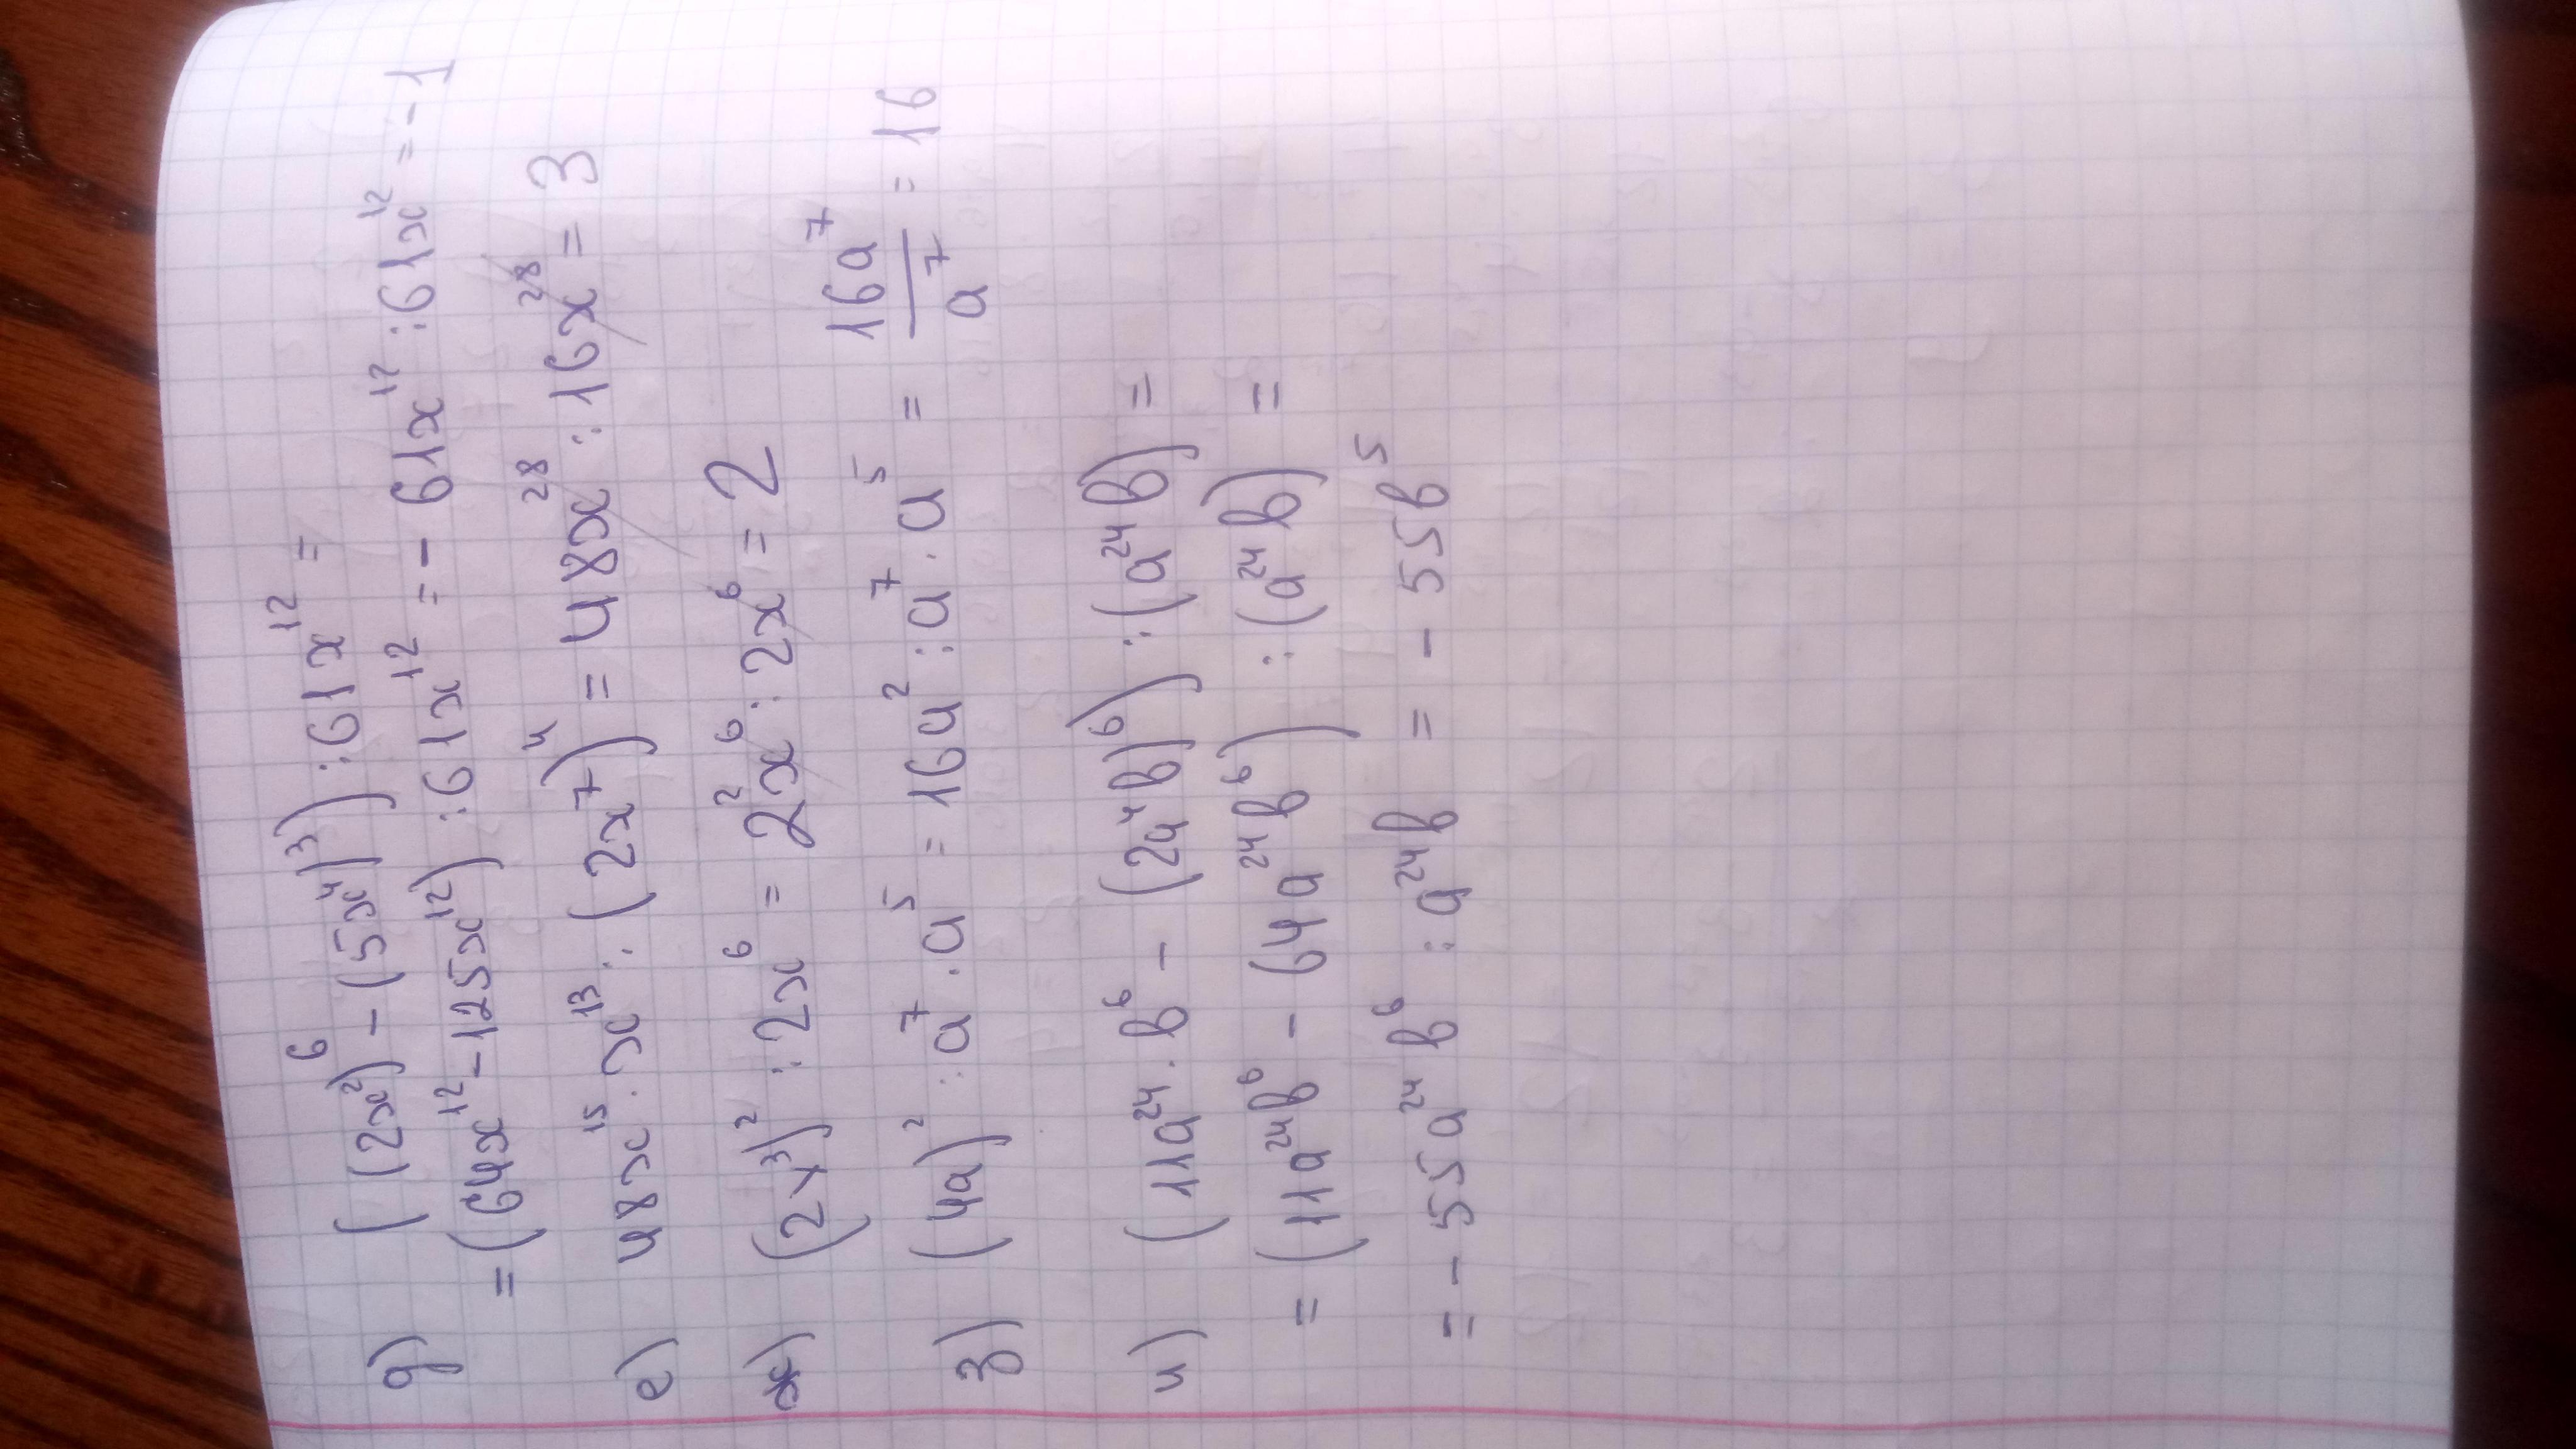 д) ((2x²)⁶ - (5x⁴)³) : 61x¹² =
= (64x¹² - 125x¹²) : 61x¹² = - 61x¹² : 61x¹² = - 1
е) 48x¹⁵ · x¹³ : (2x⁷)⁴ = 48x²⁸ : 16x²⁸ = 3
ж) (2x³)² : 2x⁶ = 2²x⁶ : 2x⁶ = 2
з) (4a)² : a⁷ · a⁵ = 16a² : a⁷ · a⁵ = 16a⁷/a⁷ = 16
и) (11a²⁴ · b⁶ - (2a⁴b)⁶) : (a²⁴b) =
= (11a²⁴b⁶ - 64a²⁴b⁶) : (a²⁴b) =
= - 55a²⁴b⁶ : a²⁴b = - 55b⁵